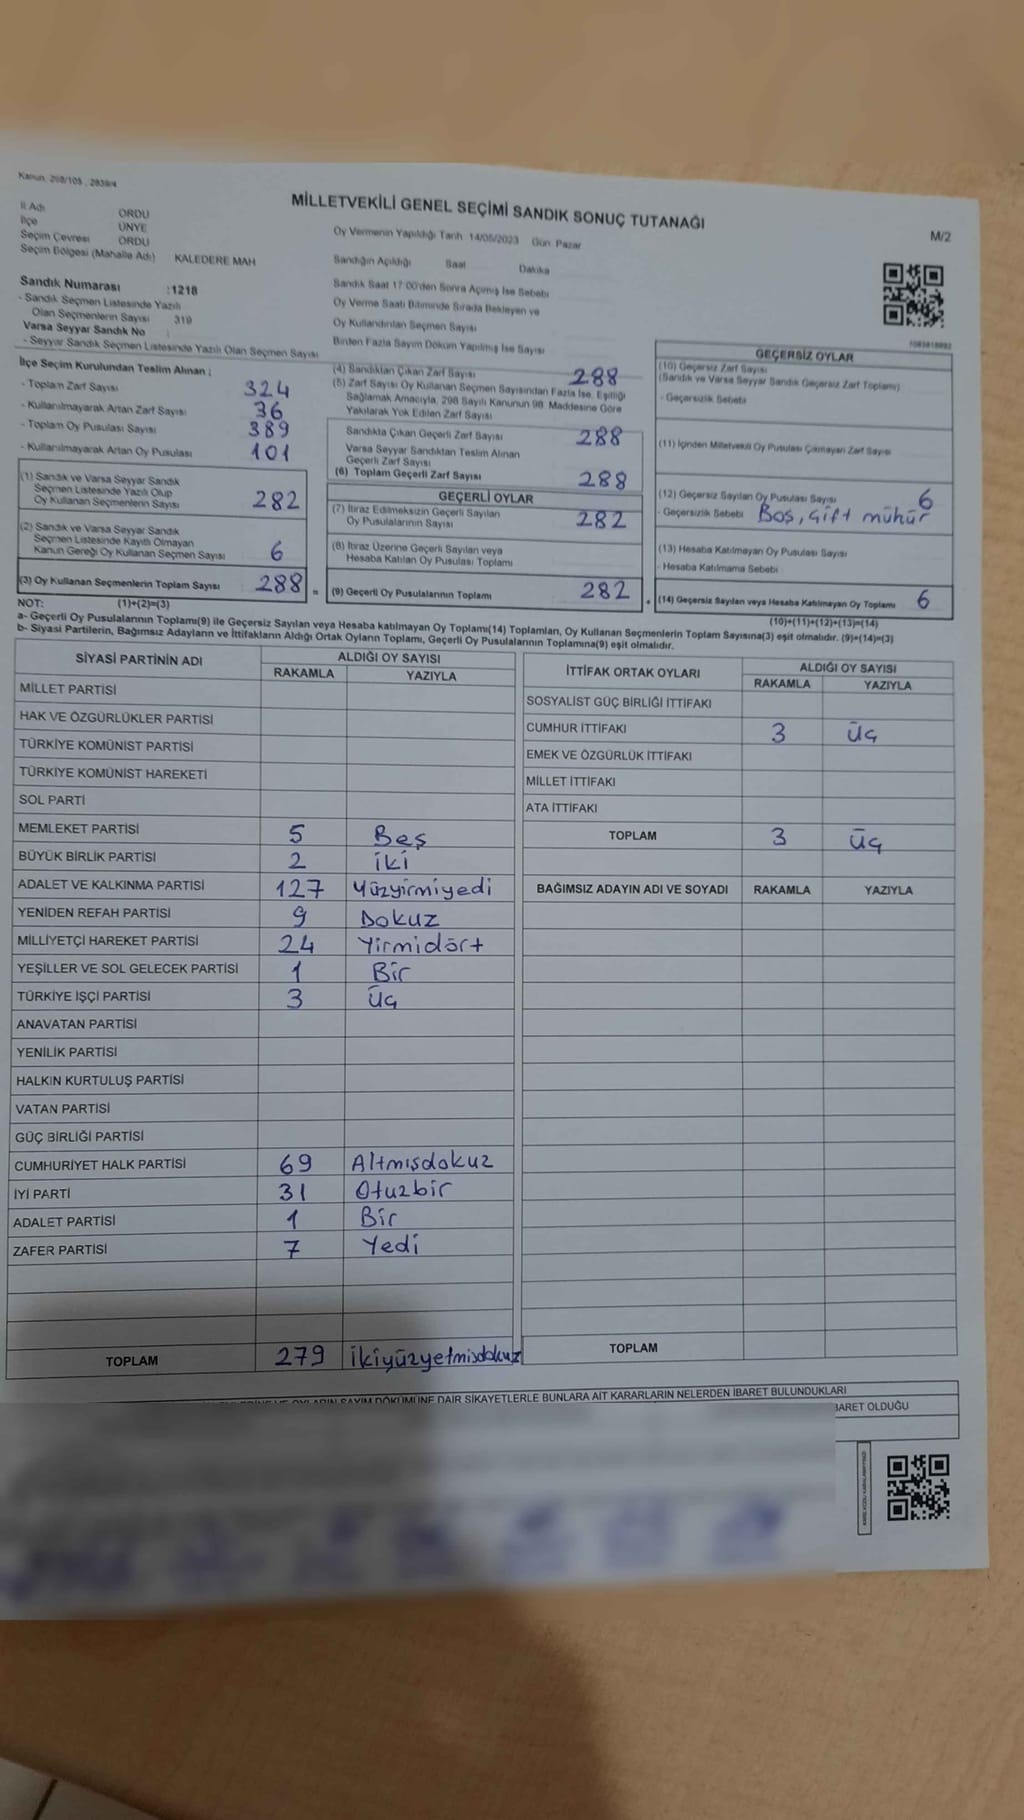 Kanun, 298/105 , 2839/4
MİLLETVEKİLİ GENEL SEÇİMİ SANDIK SONUÇ TUTANAĞI
M/2
İl Adı ORDU
İlçe ÜNYE
Seçim Çevresi ORDU
Seçim Bölgesi (Mahalle Adı) KALEDERE MAH
Oy Vermenin Yapıldığı Tarih 14/05/2023 Gün Pazar
Sandığın Açıldığı Saat Dakika
Sandık Saat 17:00'den Sonra Açımış İse Sebebi
Oy Verme Saati Bitiminde Sırada Bekleyen ve
Oy Kullandırılan Seçmen Sayısı
Birden Fazla Sayım Döküm Yapılmış İse Sayısı
Sandık Numarası :1218
- Sandık Seçmen Listesinde Yazılı
Olan Seçmenlerin Sayısı 319
Varsa Seyyar Sandık No :
- Seyyar Sandık Seçmen Listesinde Yazılı Olan Seçmen Sayısı
İlçe Seçim Kurulundan Teslim Alınan ;
- Toplam Zarf Sayısı 324
- Kullanılmayarak Artan Zarf Sayısı 36
- Toplam Oy Pusulası Sayısı 389
- Kullanılmayarak Artan Oy Pusulası 101
(1) Sandık ve Varsa Seyyar Sandık
Seçmen Listesinde Yazılı Olup
Oy Kullanan Seçmenlerin Sayısı 282
(2) Sandık ve Varsa Seyyar Sandık
Seçmen Listesinde Kayıtlı Olmayan
Kanun Gereği Oy Kullanan Seçmen Sayısı 6
(3) Oy Kullanan Seçmenlerin Toplam Sayısı 288 =
(4) Sandıktan Çıkan Zarf Sayısı 288
(5) Zarf Sayısı Oy Kullanan Seçmen Sayısından Fazla İse, Eşitliği
Sağlamak Amacıyla, 298 Sayılı Kanunun 98. Maddesine Göre
Yakılarak Yok Edilen Zarf Sayısı
Sandıkta Çıkan Geçerli Zarf Sayısı 288
Varsa Seyyar Sandıktan Teslim Alınan
Geçerli Zarf Sayısı
(6) Toplam Geçerli Zarf Sayısı 288
GEÇERLİ OYLAR
(7) İtiraz Edilmeksizin Geçerli Sayılan
Oy Pusulalarının Sayısı 282
(8) İtiraz Üzerine Geçerli Sayılan veya
Hesaba Katılan Oy Pusulası Toplamı
(9) Geçerli Oy Pusulalarının Toplamı 282 +
GEÇERSİZ OYLAR
(10) Geçersiz Zarf Sayısı
(Sandık ve Varsa Seyyar Sandık Geçersiz Zarf Toplamı)
- Geçersizlik Sebebi
(11) İçinden Milletvekili Oy Pusulası Çıkmayan Zarf Sayısı
(12) Geçersiz Sayılan Oy Pusulası Sayısı 6
- Geçersizlik Sebebi Boş, çift mühür
(13) Hesaba Katılmayan Oy Pusulası Sayısı
- Hesaba Katılmama Sebebi
(14) Geçersiz Sayılan veya Hesaba Katılmayan Oy Toplamı 6
NOT: (1)+(2)=(3) (10)+(11)+(12)+(13)=(14)
a- Geçerli Oy Pusulalarının Toplamı(9) ile Geçersiz Sayılan veya Hesaba katılmayan Oy Toplamı(14) Toplamları, Oy Kullanan Seçmenlerin Toplam Sayısına(3) eşit olmalıdır. (9)+(14)=(3)
b- Siyasi Partilerin, Bağımsız Adayların ve İttifakların Aldığı Ortak Oyların Toplamı, Geçerli Oy Pusulalarının Toplamına(9) eşit olmalıdır.
SİYASİ PARTİNİN ADI ALDIĞI OY SAYISI
RAKAMLA YAZIYLA
MİLLET PARTİSİ
HAK VE ÖZGÜRLÜKLER PARTİSİ
TÜRKİYE KOMÜNİST PARTİSİ
TÜRKİYE KOMÜNİST HAREKETİ
SOL PARTİ
MEMLEKET PARTİSİ 5 Beş
BÜYÜK BİRLİK PARTİSİ 2 iki
ADALET VE KALKINMA PARTİSİ 127 Yüzyirmiyedi
YENİDEN REFAH PARTİSİ 9 Dokuz
MİLLİYETÇİ HAREKET PARTİSİ 24 Yirmidört
YEŞİLLER VE SOL GELECEK PARTİSİ 1 Bir
TÜRKİYE İŞÇİ PARTİSİ 3 Üç
ANAVATAN PARTİSİ
YENİLİK PARTİSİ
HALKIN KURTULUŞ PARTİSİ
VATAN PARTİSİ
GÜÇ BİRLİĞİ PARTİSİ
CUMHURİYET HALK PARTİSİ 69 Altmışdokuz
İYİ PARTİ 31 Otuzbir
ADALET PARTİSİ 1 Bir
ZAFER PARTİSİ 7 Yedi
TOPLAM 279 ikiyüzyetmişdokuz
İTTİFAK ORTAK OYLARI ALDIĞI OY SAYISI
RAKAMLA YAZIYLA
SOSYALİST GÜÇ BİRLİĞİ İTTİFAKI
CUMHUR İTTİFAKI 3 Üç
EMEK VE ÖZGÜRLÜK İTTİFAKI
MİLLET İTTİFAKI
ATA İTTİFAKI
TOPLAM 3 Üç
BAĞIMSIZ ADAYIN ADI VE SOYADI RAKAMLA YAZIYLA
TOPLAM
SAYIM DÖKÜMÜNE DAİR ŞİKAYETLERLE BUNLARA AİT KARARLARIN NELERDEN İBARET BULUNDUKLARI
İBARET OLDUĞU